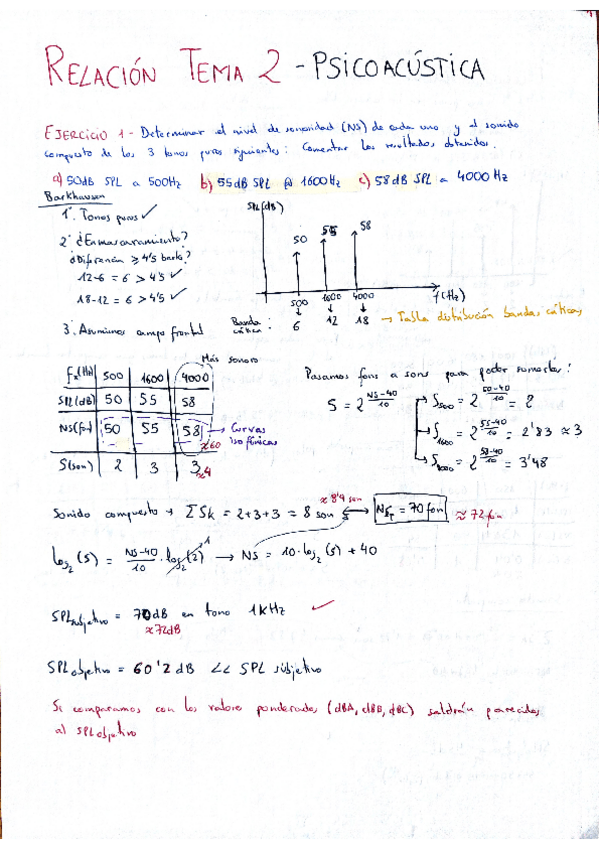 RELACIÓN TEMA 2 - PSICOACÚSTICA
EJERCICIO 1 - Determinar el nivel de sonoridad (NS) de cada uno y el sonido
compuesto de los 3 tonos puros siguientes: Comentar los resultados obtenidos.
a) 50dB SPL a 500Hz b) 55dB SPL @ 1600Hz c) 58dB SPL a 4000Hz
Barkhausen
1º. Tonos puros ✓
2º ¿Enmascaramiento?
¿Diferencia ≥ 4'5 barks?
12-6 = 6 > 4'5 ✓
18-12 = 6 > 4'5 ✓
3º. Asumimos campo frontal
SPL(dB)
50 55 58
500 1600 4000 f(Hz)
Banda crítica : 6 12 18 → Tabla distribución bandas críticas
Más sonoro
fx(Hz) 500 1600 4000
SPL(dB) 50 55 58
NS(fon) 50 55 58 ≈60 → Curvas isofónicas
S(son) 2 3 3 ≈4
Pasamos fons a sons para poder sumarlos:
S = 2^((NS-40)/10)
S500 = 2^((50-40)/10) = 2
S1600 = 2^((55-40)/10) = 2'83 ≈ 3
S4000 = 2^((58-40)/10) = 3'48
≈ 8'9 son
Sonido compuesto → ΣSk = 2+3+3 = 8 son ↔ NST = 70 fon ≈ 72 fon
log2(S) = (NS-40)/10 · log2(2) 1 → NS = 10·log2(S) + 40
SPLsubjetivo = 70dB en tono 1kHz ✓
≈72dB
SPLobjetivo = 60'2 dB << SPL subjetivo
Si comparamos con los valores ponderados (dBA, dBB, dBC) saldrán parecidos
al SPLobjetivo